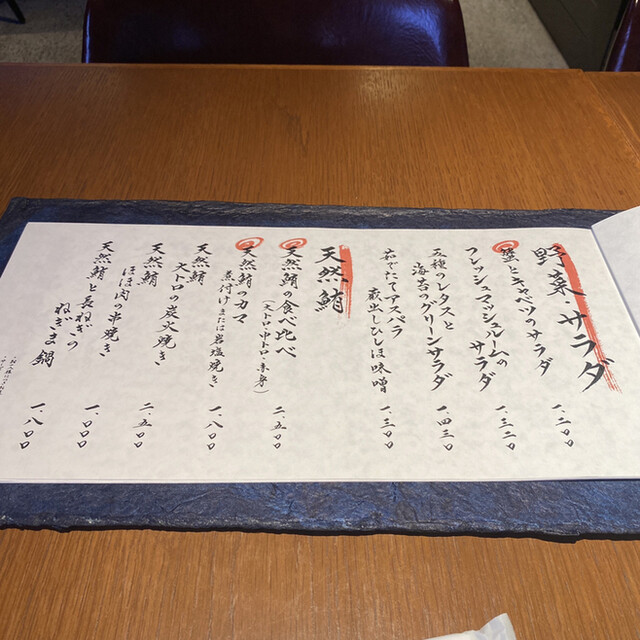 野菜 サラダ
蟹とキャベツのサラダ 一、二〇〇
フレッシュマッシュルームの
サラダ 一、三二〇
五種のレタスと
海苔のグリーンサラダ 一、四三〇
茹でたてアスパラ
蔵出しひしほ味噌 一、三〇〇
天然鮪
天然鮪の食べ比べ
(大トロ・中トロ・赤身) 二、五〇〇
天然鮪のカマ
煮付けまたは岩塩焼き 一、八〇〇
天然鮪
大トロの炭火焼き 二、五〇〇
天然鮪
ほほ肉の串焼き 一、〇〇〇
天然鮪と長ねぎの
ねぎま鍋 一、八〇〇